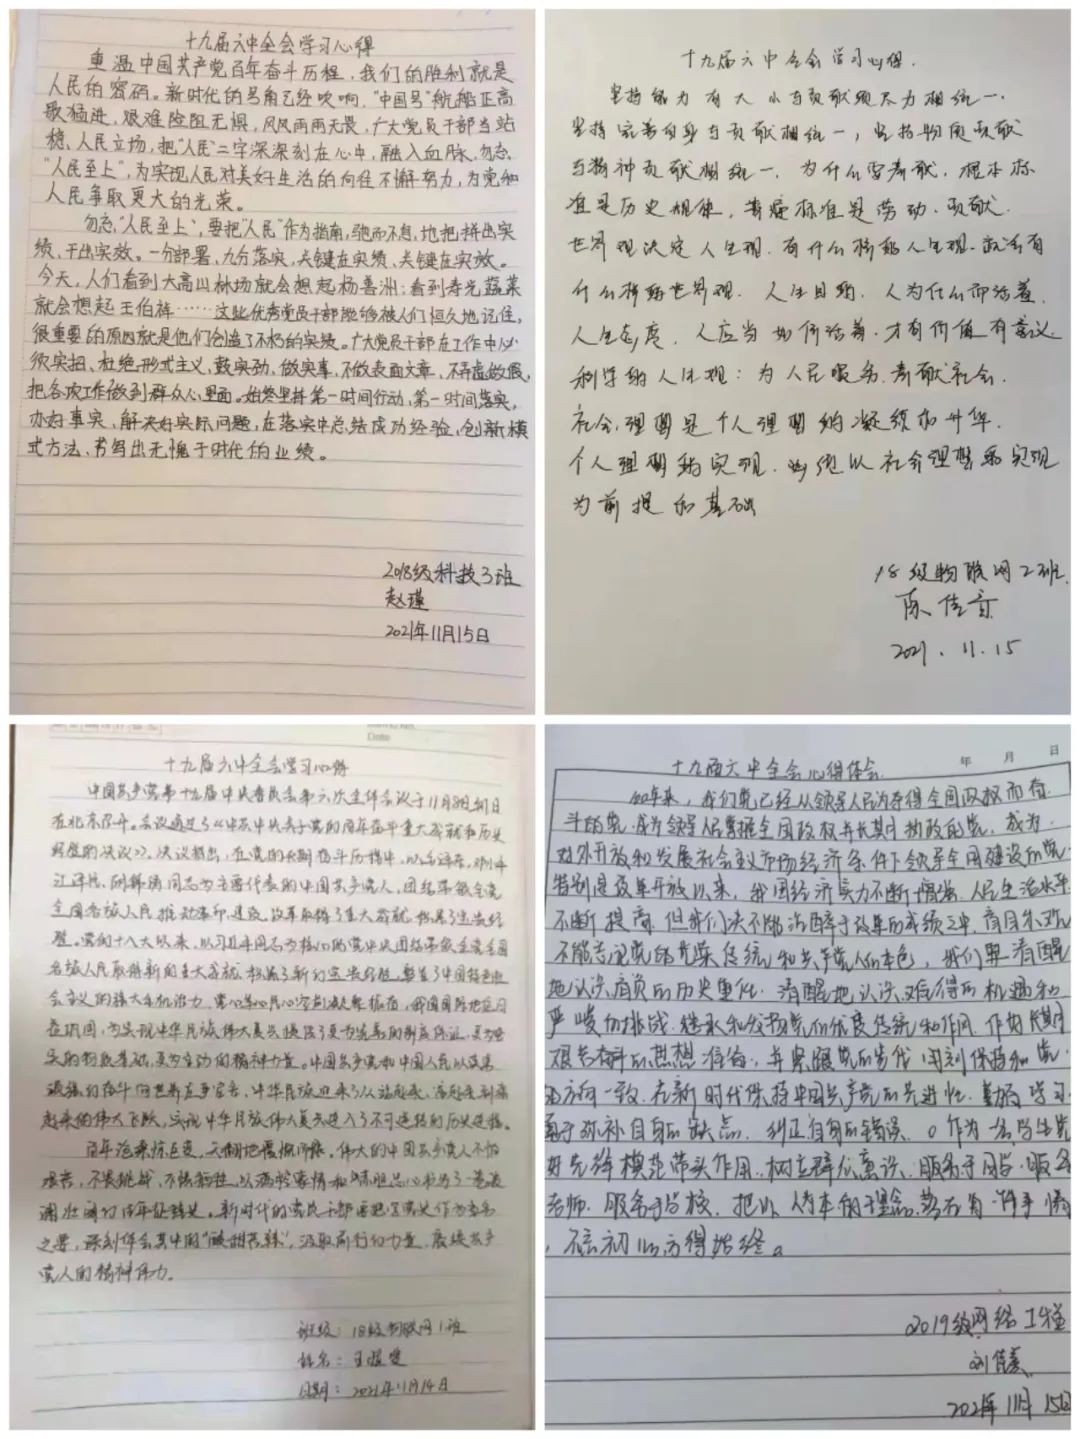 十九届六中全会学习心得
重温中国共产党百年奋斗历程，我们的胜利就是
人民的密码。新时代的号角已经吹响，“中国号”航船正高
歌猛进，艰难险阻无惧，风风雨雨无畏，广大党员干部当站
稳，人民立场，把“人民”二字深深刻在心中，融入血脉，勿忘
“人民至上”，为实现人民对美好生活的向往不懈努力，为党和
人民争取更大的光荣。
勿忘“人民至上”，要把“人民”作为指南，驰而不息，地把拼出实
绩，干出实效。一分部署，九分落实，关键在实绩，关键在实效。
今天，人们看到大亮山林场就会想起杨善洲；看到寿光蔬菜
就会想起王伯祥……这些优秀党员干部能够被人们恒久地记住，
很重要的原因就是他们创造了不朽的实绩。广大党员干部在工作中必
须实招、杜绝形式主义，鼓实劲，做实事，不做表面文章，不弄虚做假，
把各项工作做到群众心里面。始终坚持第一时间行动，第一时间落实，
办好事实，解决好实际问题，在落实中总结成功经验，创新模
式方法，书写出无愧于时代的业绩。
2018级科技3班
赵瑾
2021年11月15日
十九届六中全会学习心得.
坚持能力有大小与贡献须尽力相统一.
坚持完善自身与贡献相统一，坚持物质贡献
与精神贡献相统一. 为什么要奉献. 根本标
准是历史规律，普遍标准是劳动. 贡献.
世界观决定人生观. 有什么样的人生观. 就会有
什么样的世界观. 人生目的. 人为什么而活着.
人生态度. 人应当如何活着. 才有价值有意义.
科学的人生观：为人民服务. 奉献社会.
社会理想是个人理想的凝练和升华.
个人理想的实现. 必须以社会理想的实现
为前提和基础
18级物联网2班.
陈佳音
2021.11.15
Date
十九届六中全会学习心得
中国共产党第十九届中央委员会第六次全体会议于11月8日到11日
在北京召开。会议通过了《中共中央关于党的百年奋斗重大成就和历史
经验的决议》。决议指出，在党的长期奋斗历程中，以毛泽东，邓小平
江泽民，胡锦涛同志为主要代表的中国共产党人，团结带领全党
全国各族人民推动革命，建设，改革取得了重大成就，积累了宝贵经
验。党的十八大以来，以习近平同志为核心的党中央团结带领全党全国
各族人民取得新的重大成就，积累了新的宝贵经验
会主义的强大生机活力，党心军心民心空前凝聚振奋，我国国际地位日
益巩固，为实现中华民族伟大复兴提供了更为完善的制度保证，更为坚
实的物质基础，更为主动的精神力量。中国共产党和中国人民以英勇
顽强的奋斗向世界庄严宣告，中华民族迎来了从站起来，富起来到强
起来的伟大飞跃，实现中华民族伟大复兴进入了不可逆转的历史进程。
百年沧桑惊巨变，天翻地覆慨而慷。伟大的中国共产党人不怕
艰苦，不畏挑战，不惧牺牲，以满腔豪情和
之要，深刻体会其中国“酸甜苦辣”，汲取前行的力量，赓续共产
党人的精神伟力。
班级：18级物联网1班
姓名：王
日期：2021年11月14日
年 月 日
十九届六中全会心得体会
100年来，我们党已经从领导人民为夺得全国政权而奋
斗的党，成为领导人民掌握全国政权并长期执政的党，成为
对外开放和发展社会主义市场经济条件下领导全国建设的党
特别是改革开放以来，我国经济实力不断增强，人民生活水平
不断提高. 但我们决不能沾醉于改革的成绩之中
不能忘记党的光荣传统和共产党人的本色，我们要清醒
地认识肩负的历史重任. 清醒地认识难得的机遇和
严峻的挑战. 继承和发扬党的优良传统和作风. 作好长期
艰苦奋斗的思想准备，并紧跟党的步伐 时刻保持和党
的方向一致. 在新时代保持中国共产党的先进性. 勤奋学习
勇于弥补自身的缺点. 纠正自身的错误。作为一名学生党
好先锋模范带头作用. 树立群众意识. 服务于同学. 服务
老师. 服务于学校. 把以人为本的理念落在每一件事情
，不忘初心方得始终。
2019级网络工程
刘佳
2021年11月15日